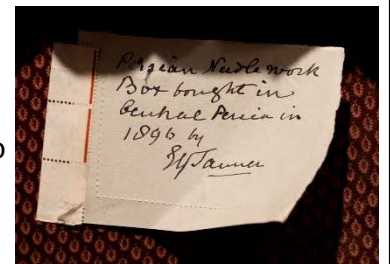 Persian Needlework
Box bought in
Central Persia in
1896 by
Tanner